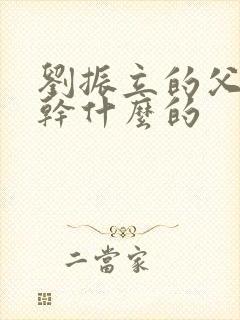 劉振立的父
幹什麼的
二當家